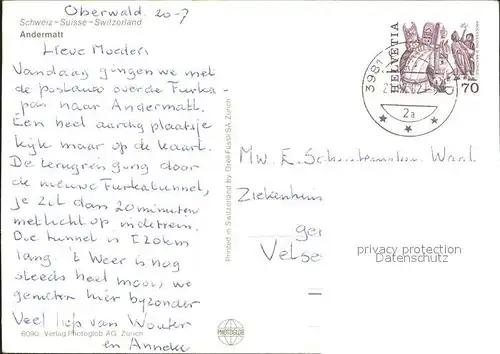 Oberwald. 20-7
Schweiz-Suisse-Switzerland
Andermatt
Lieve Moeder,
Vandaag gingen we met
de postauto over de Furka-
pas naar Andermatt.
Een heel aardig plaatsje
kijk maar op de kaart.
De terugreis ging door
de nieuwe Furkatunnel,
je zit dan 20 minuten
met licht op in de trein.
Die tunnel is ± 20 km
lang. 't Weer is nog
steeds heel mooi, we
genieten hier byzonder
Veel liefs van Wouter
en Anneke
6090 Verlag Photoglob AG, Zürich
Printed in Switzerland by Orell Füssli SA Zürich
PHOTOGLOB
HELVETIA
70
3981
2a
Mw. E.
Ziekenhuis
Velse
privacy protection
Datenschutz